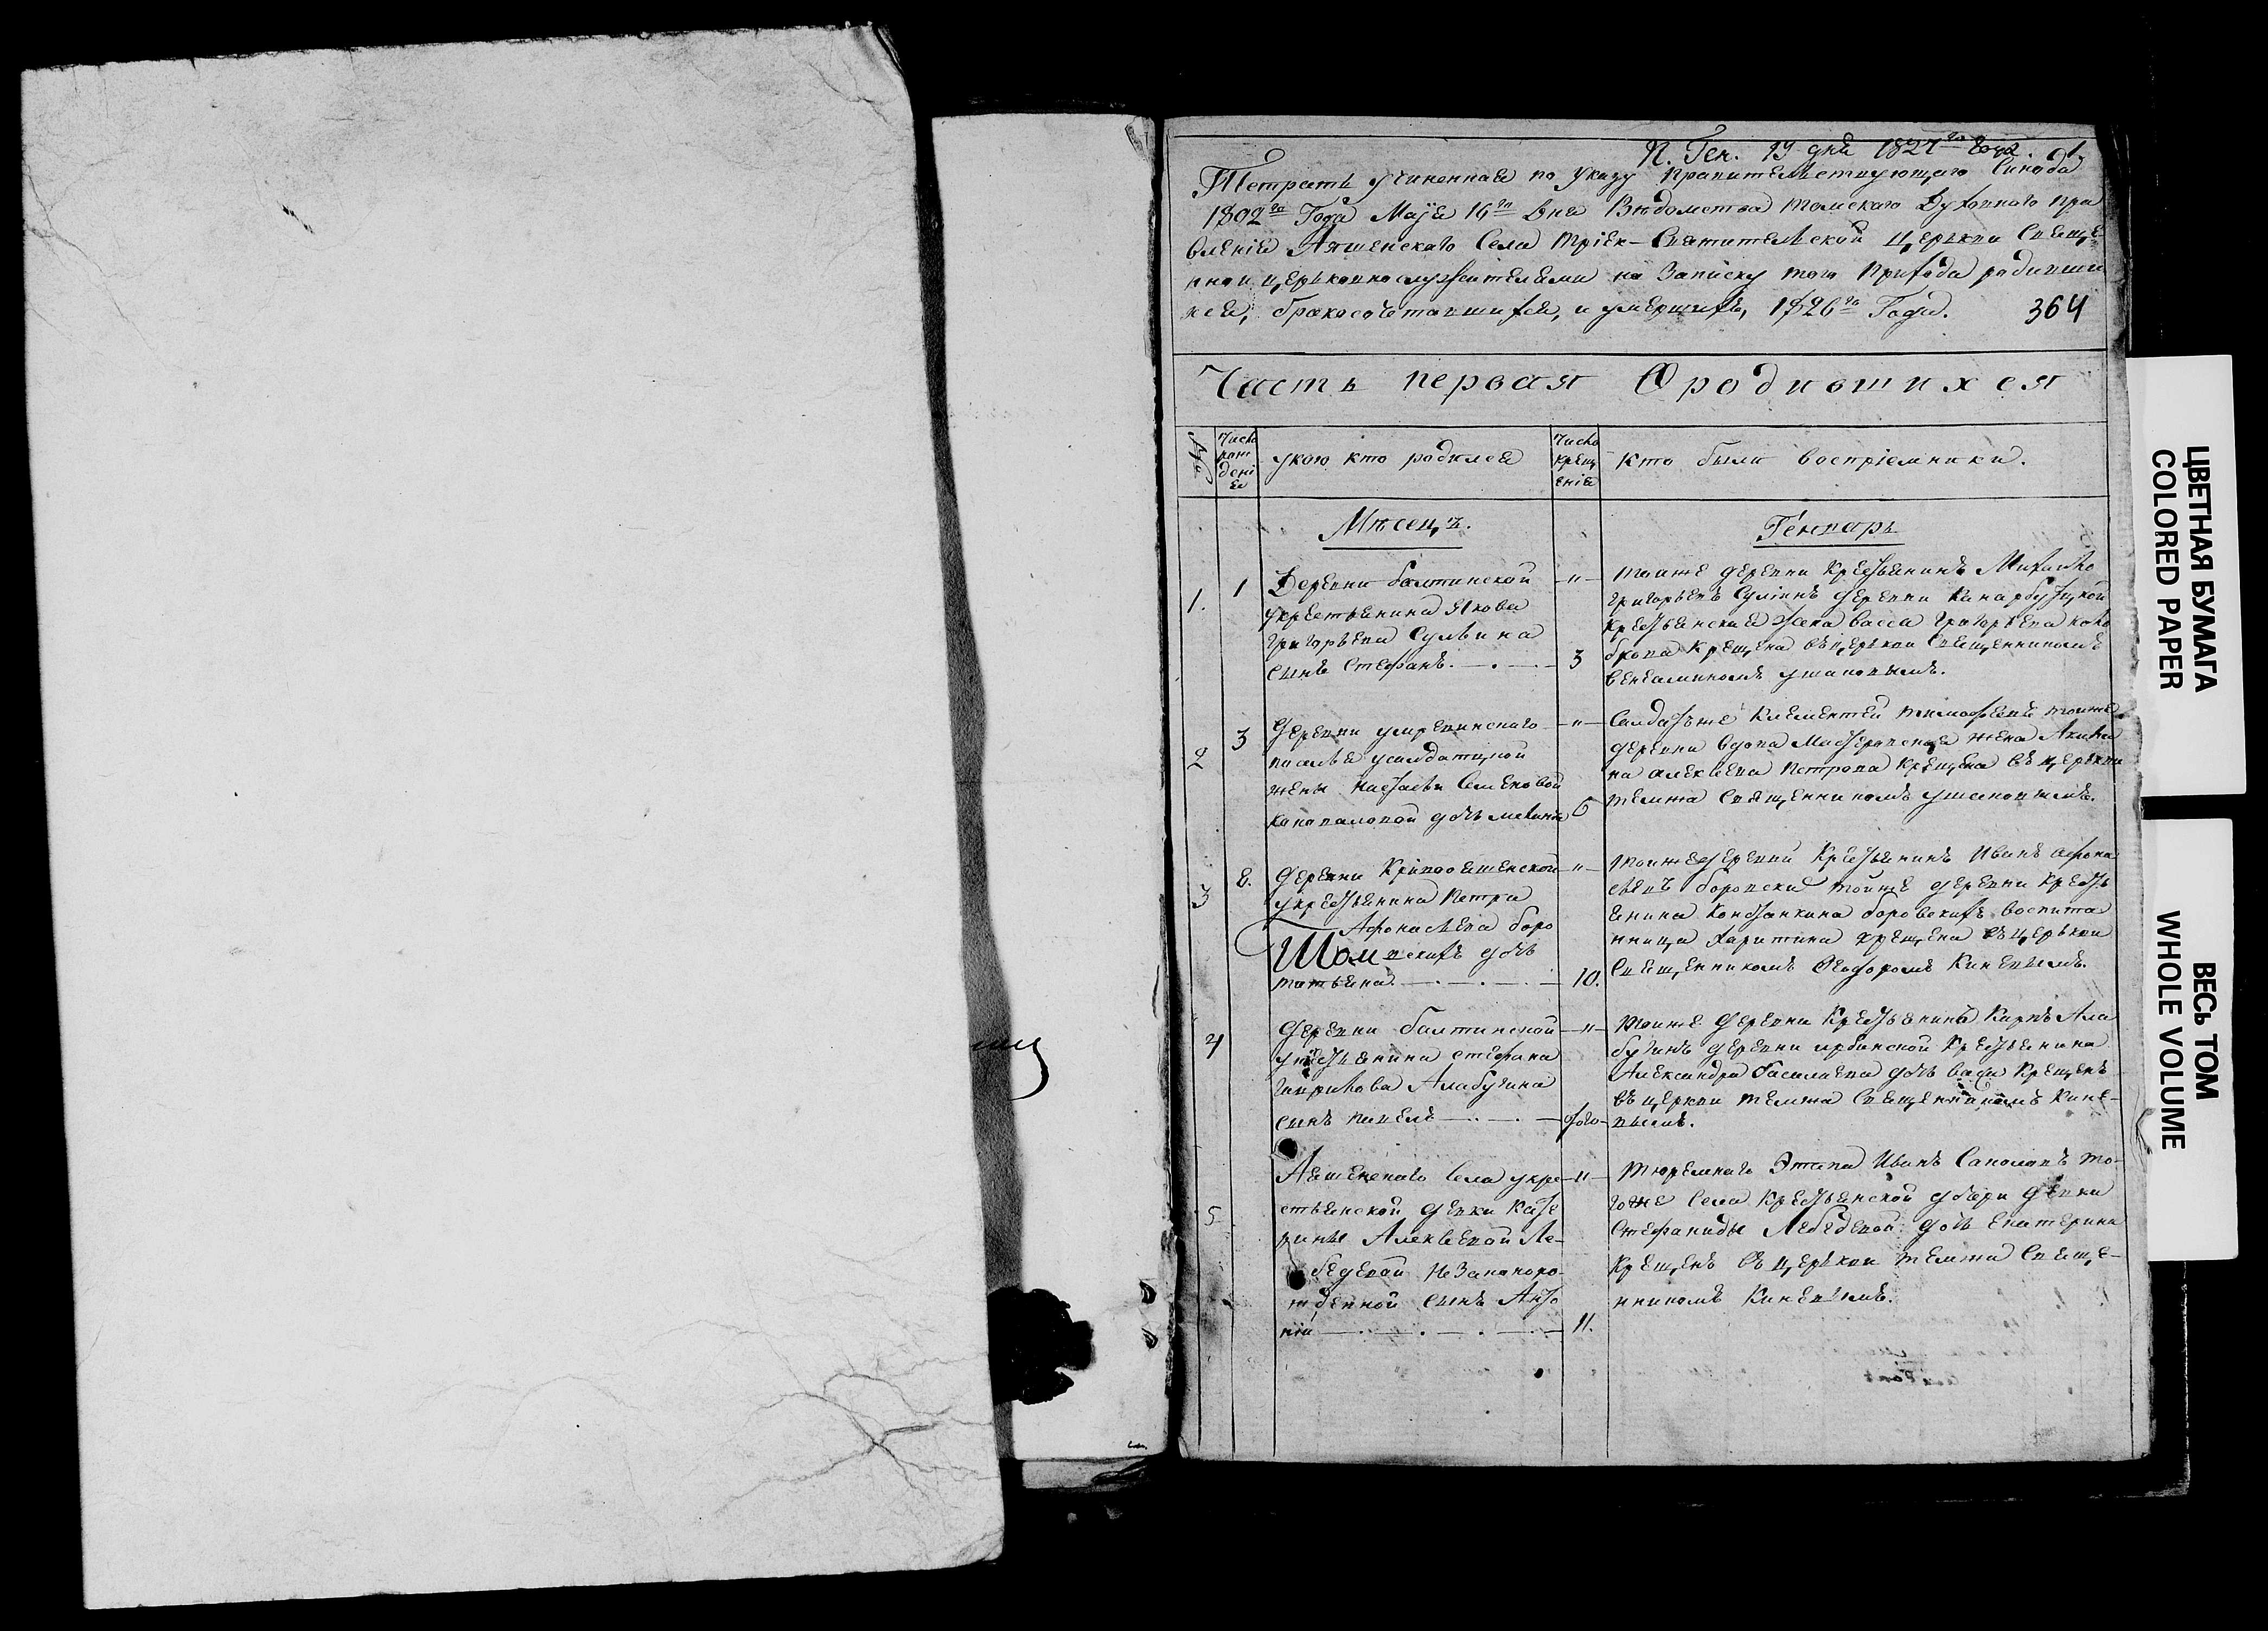 П. Ген. 19 дня 1827го года. 1
Тетрать учиненная по указу правительствующаго Синода
1802го Года Маия 16го дня Ведомства томскаго Духовнаго пра
вления Аяшенскаго Села трiех-Святительской церькви Свяще
нно и церьковнослужителями на Записку того прихода родивши
хся, бракосочетавшихся, и умершихъ, 1826го Года. 364
Часть первая О родившихся
Число рождения
укого кто родился
Число крещения
кто были восприемники.
Месецъ.
Генварь
1.
1
Деревни балтинской
укрестьянина Якова
григорьева Сулвина
сынъ Стефанъ.
3
тоиже деревни крестьянинъ Михайло
григорьевъ деревни
крестьянская жена васса григорьева
крещена въ церькви Священникомъ
вениаминомъ ушаковымъ.
2
3
деревни умревинскаго
усалдатцкой
жены настасьи Семеновой
дочь
6
Салдатъ же Климентей тимофеевъ тоиже
деревни вдова жена Акили
на алексеева петрова крещена въ церькви
темжа Священникомъ ушаковымъ.
3
8.
деревни Кривояшенской
укрестьянина петра
Афонасьева боро
Том вскихъ дочь
татьяна.
10.
тоиже деревни крестьянинъ Иванъ афона
сьевъ боровски тоиже деревни кресть
янина боровскихъ воспита
нница Харитина крещена въ церькви
Священникомъ Феодоромъ Киневымъ.
4
деревни балтинской
стефана
гаврилова Алабугина
сынъ павелъ
тоиже деревни крестьянинъ карпъ Ала
бугинъ деревни крестьянина
Александра Василиева дочь крещенъ
въ церкви темжа Священникомъ Кине-
вымъ.
5
Аяшенскаго Села укре-
стьянской девки Кате
рины Алексеевой Ле-
бедевой незаконоро-
жденной сынъ Анто
нiй
11.
тюремнаго Этапа Иванъ то-
гоже Села крестьянской девки
Стефаниды Лебедевой дочь Екатерина
крещенъ въ церькви темжа Свяще-
нникомъ Киневымъ.
ЦВЕТНАЯ БУМАГА
COLORED PAPER
ВЕСЬ ТОМ
WHOLE VOLUME